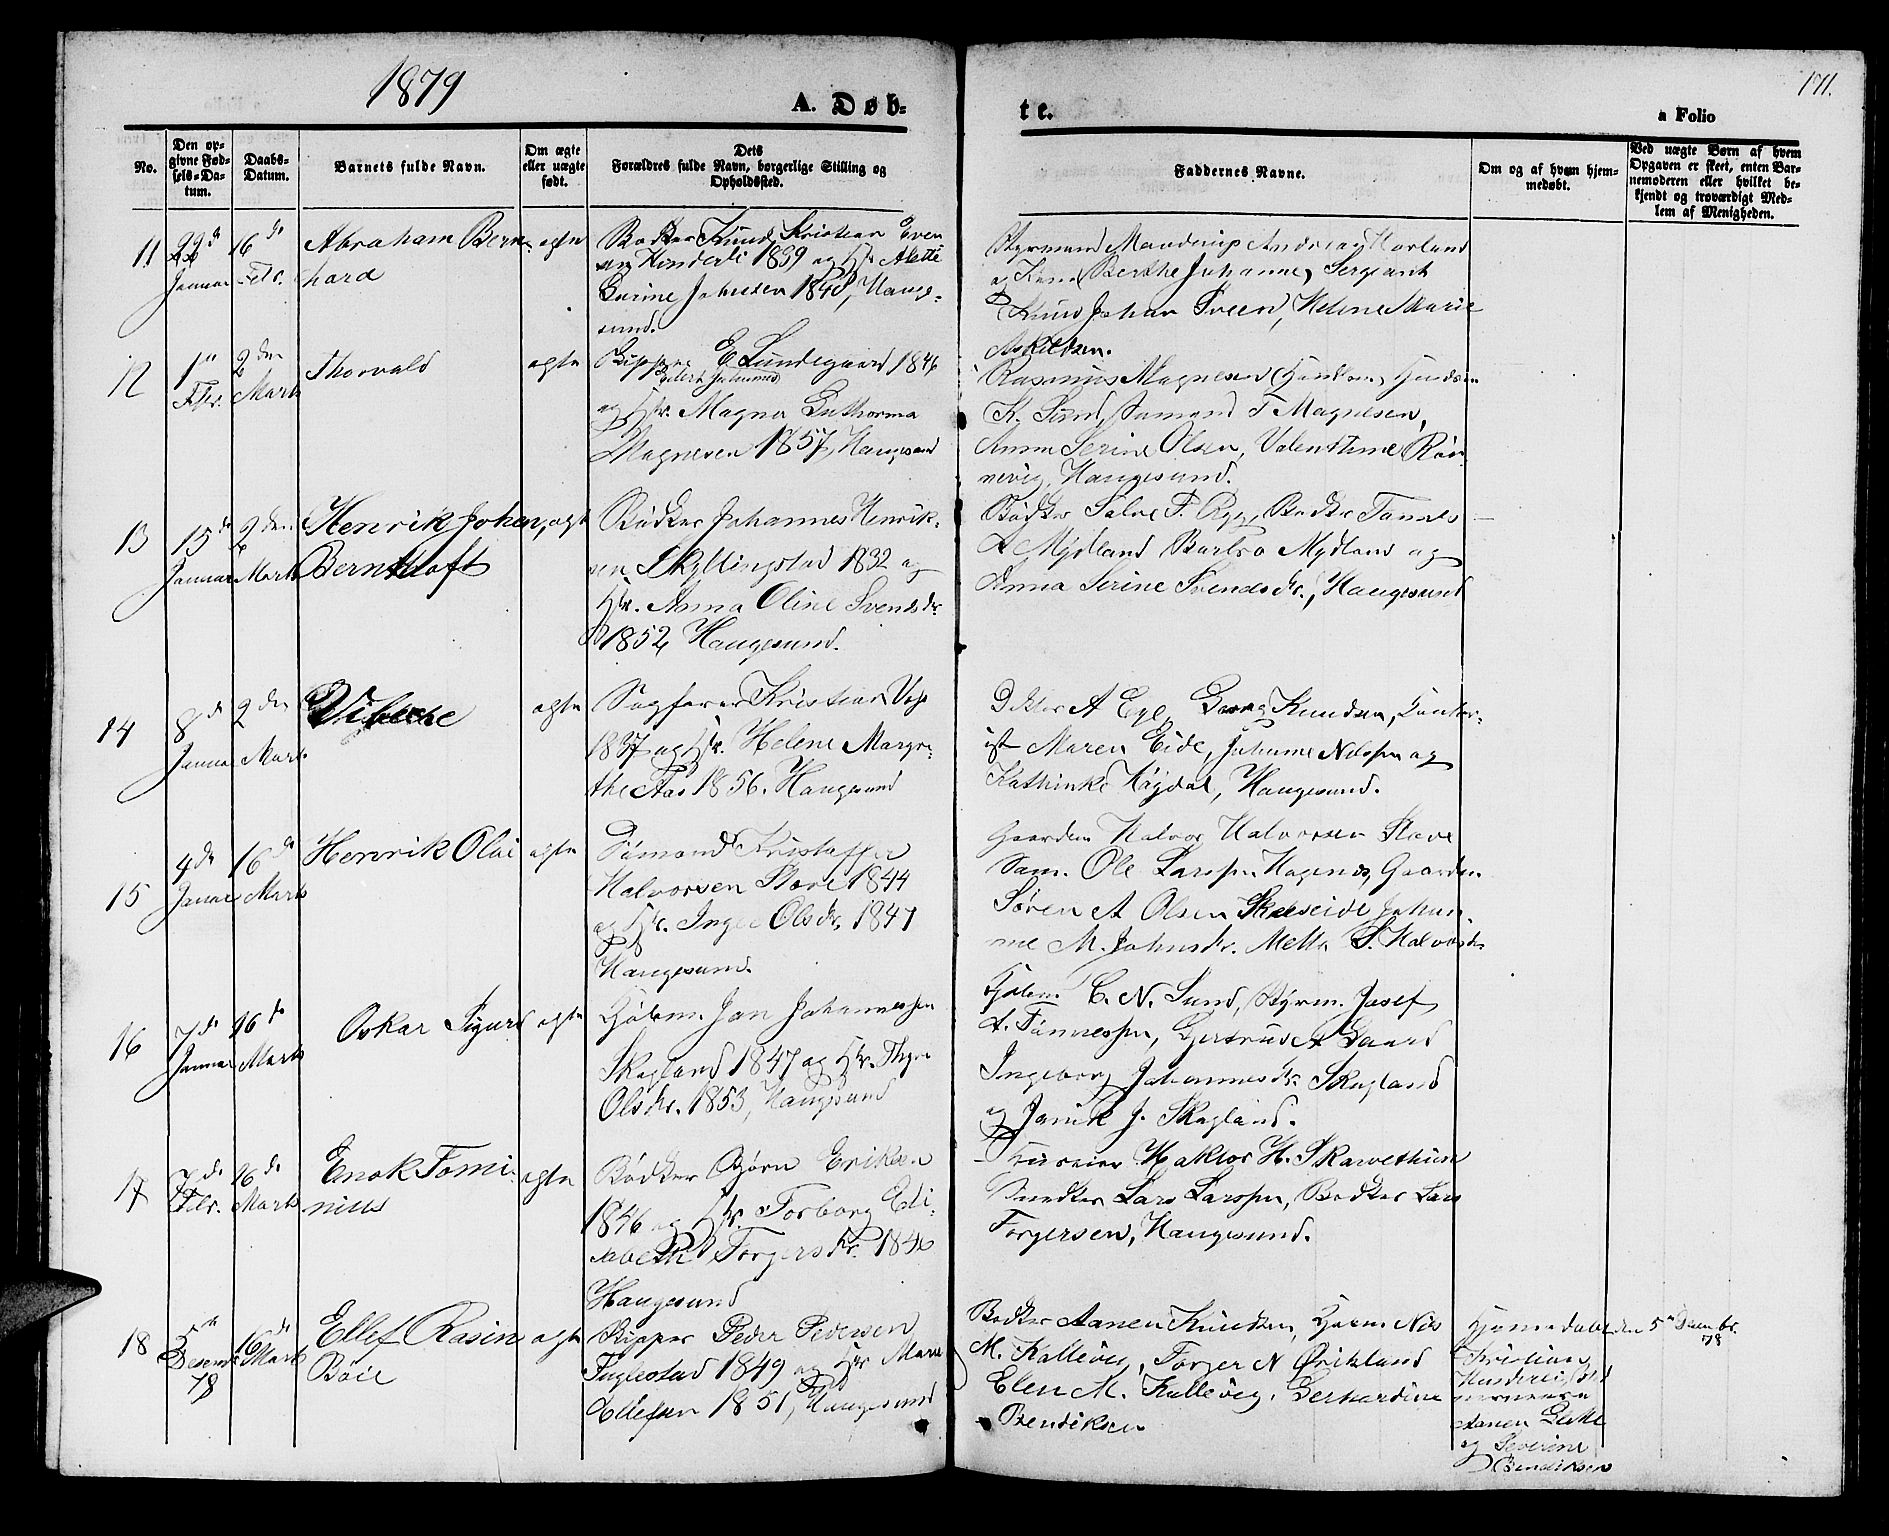 1879
A. Døb-
te.
171.
a Folio
No.
Den op-
givne Fød-
sels-Da-
tum.
Daabs-
Datum.
Barnets fulde Navn.
Om ægte
eller uægte
født.
Dets
Forældres fulde Navn, borgerlige Stilling og
Opholdssted.
Faddernes Navne.
Om og af hvem hjem-
medøbt.
Ved uægte Børn af hvem
Opgaven er skeet, enten Bar-
nemoderen eller hvilket be-
kjendt og troværdigt Med-
lem af Menigheden.
11
22de
Januar
16de
Feb.
Abraham Bern-
hard
ægte
Bødker Knud Kristian Even
1839 og Hstr Alette
Gurine Johnsen 1840, Hauge-
sund.
Styrmand Manderup Andreas Hovland
og Kone Berthe Johanne, Sergeant
Knud Johan Sveen, Helene Marie
Askildsen.
12
1ste
Febr.
2den
Marts
Thorvald
ægte
Skipper E Lundegaard 1846
Peder Johannes
og Hstr. Magna Guthorma
Magnesen 1857, Haugesund
Rasmus Magnesen
K. Sund, Sømand T Magnesen,
Anna Serine Olsen, Valentine Røv-
nevig, Haugesund.
13
15de
Januar
2den
Marts
Henrik Johan
Berntloft
ægte
Bødker Johannes Henrik-
sen Skyllingstad 1832 og
Hstr. Anna Oline Svendsdr.
1852, Haugesund.
Bødker Salve F. Ege, Bødker Tønnes
Mydland Mydland og
Anna Serine Svendsdr., Haugesund
14
8de
Januar
2den
Marts
Vibecke
ægte
Sagfører Kristian
1837 og Hstr. Helene Margre-
the Aas 1856. Haugesund
Doktor A Ege, Georg Knudsen, Kontor-
ist Maren Eide, Johanne Nilssen og
Kathinke Høydal, Haugesund.
15
4de
Januar
16de
Marts
Henrik Olai
ægte
Sømand Kristoffer
Halvorsen Stave 1844
og Hstr. Inger Olsdr. 1847
Haugesund.
Gaardm Halvor Halvorsen Stave
Søm. Ole Larssen Hagenæs, Gaardm.
Søren A Olsen Skeiseide Johan-
ne M. Johnsdr. Mette S. Halvorsdr.
16
7de
Januar
16de
Marts
Oskar Sigurd
ægte
Hjølsm. Jan Johannessen
Skagland 1847 og Hstr. Thyra
Olsdr. 1853, Haugesund
C. N. Sund, Styrm. Josef
A. Tønnessen, Gertrud A Gaard
Ingeborg Johannesdr. Skagland
og Janik J. Skagland.
17
7de
Febr.
16de
Marts
Enok Tomi-
nius
ægte
Bødker Bjørn Eriksen
1846 og Hstr. Torborg Eli-
sabeth Torgersdr. 1846
Haugesund
Haktor H. Skarvethun
Snedker Lars Larssen, Bødker Lars
Torgersen, Haugesund.
18
5te
Desember
78
16de
Marts
Ellef Rasin
Böie
ægte
Skipper Peder Pedersen
Fuglestad 1849 og Hstr Maren
Ellefsen 1851, Haugesund
Bødker Aanen Knudsen, Nils
M. Kallevig, Torger N Ørikland
Elen M. Kallevig, Gerhardine
Bendiksen
Hjemmedøbt den 5te Desembr.
78
Kristian
Aanen
og Severine
Bendiksen